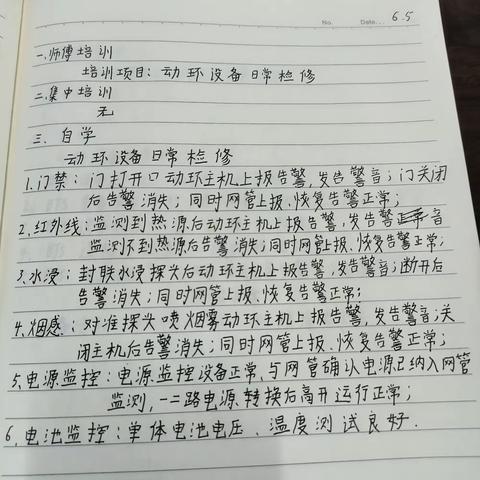 No.
Date. 6.5
一、师傅培训
培训项目：动环设备日常检修
二、集中培训
无
三、自学
动环设备日常检修
1.门禁：门打开口动环主机上报告警，发告警音；门关闭
后告警消失；同时网管上报、恢复告警正常；
2、红外线：监测到热源后动环主机上报告警，发告警音
监测不到热源后告警消失；同时网管上报、恢复告警正常；
3、水浸：封联水浸探头后动环主机上报告警，发告警音；断开后
告警消失；同时网管上报、恢复告警正常；
4、烟感：对准探头喷烟雾动环主机上报告警，发告警音；关
闭主机后告警消失；同时网管上报、恢复告警正常；
5、电源监控：电源监控设备正常，与网管确认电源已纳入网管
监测，一二路电源转换后高开运行正常；
6、电池监控：单体电池电压、温度测试良好.